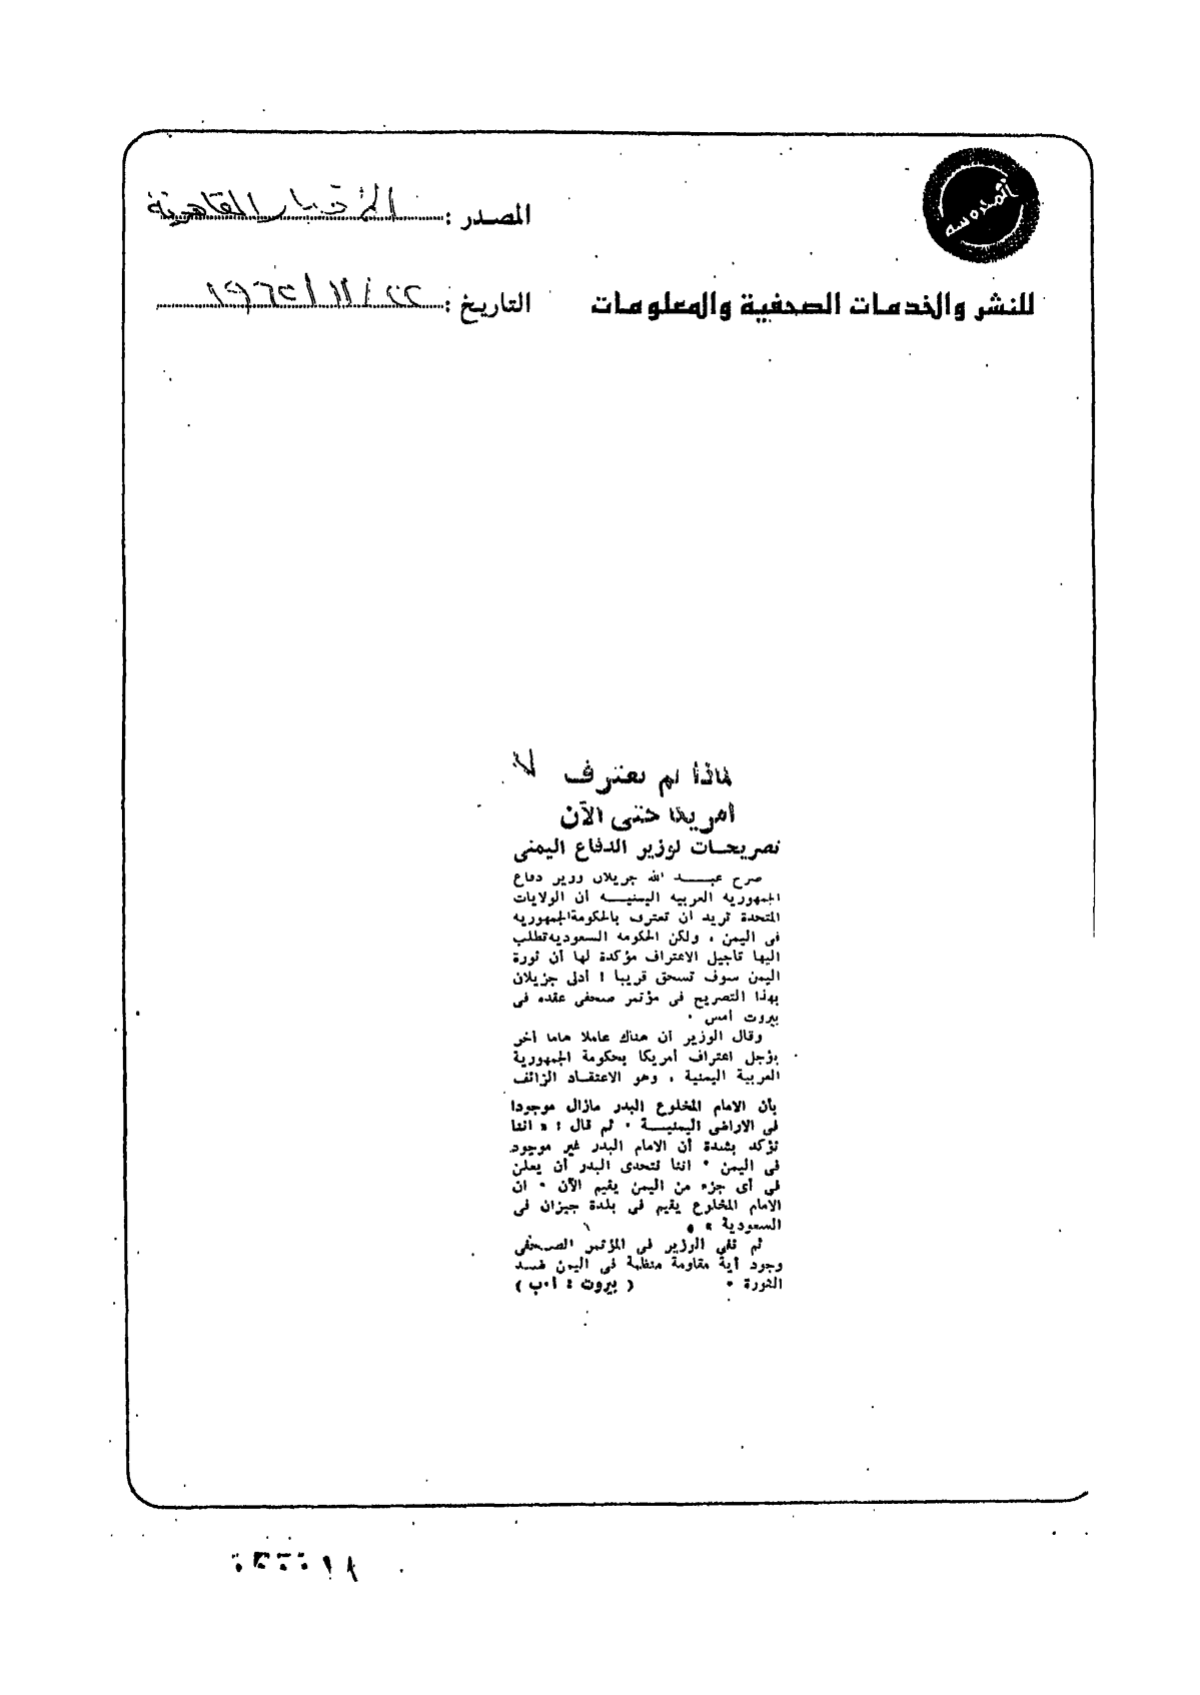 المحروسة
المصدر : الأخبار القاهرية
للنشر والخدمات الصحفية والمعلومات
التاريخ : ٢٢ / ١١ / ١٩٦٢
لماذا لم تعترف
امريكا حتى الآن
تصريحات لوزير الدفاع اليمنى
صرح عبد الله جزيلان وزير دفاع
الجمهورية العربية اليمنيــة أن الولايات
المتحدة تريد ان تعترف بالحكومةالجمهورية
فى اليمن ، ولكن الحكومة السعوديةتطلب
اليها تأجيل الاعتراف مؤكدة لها أن ثورة
اليمن سوف تسحق قريبا ! أدلى جزيلان
بهذا التصريح فى مؤتمر صحفى عقده فى
بيروت أمس .
وقال الوزير أن هناك عاملا هاما أخر
يؤجل اعتراف أمريكا بحكومة الجمهورية
العربية اليمنية ، وهو الاعتقـاد الزائف
بأن الامام المخلوع البدر مازال موجودا
فى الاراضى اليمنيــة . ثم قال : « اننا
نؤكد بشدة أن الامام البدر غير موجود
فى اليمن . اننا نتحدى البدر أن يعلن
فى أى جزء من اليمن يقيم الآن . ان
الامام المخلوع يقيم فى بلدة جيزان فى
السعودية » .
ثم نفى الوزير فى المؤتمر الصحفى
وجود أية مقاومة منظمة فى اليمن ضـد
الثورة . ( بيروت : أ.ب )